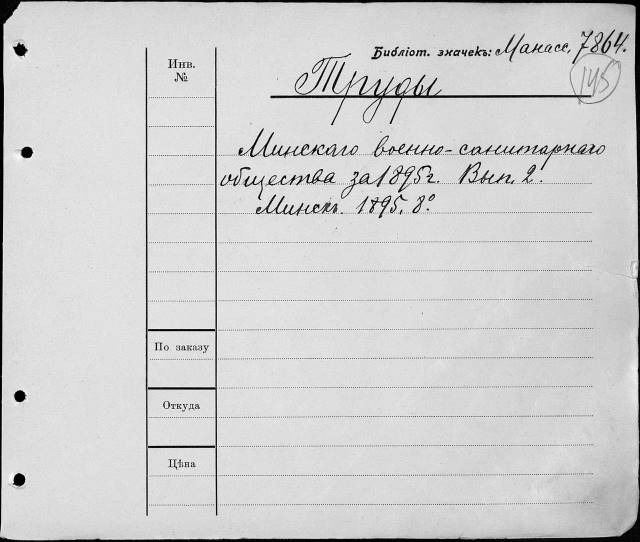 Библіот. значекъ: Манасс. 7864.
145
Инв.
№
Труды
Минскаго военно-санитарнаго
общества за 1895 г. Вып. 2.
Минскъ. 1895. 8°
По заказу
Откуда
Цѣна